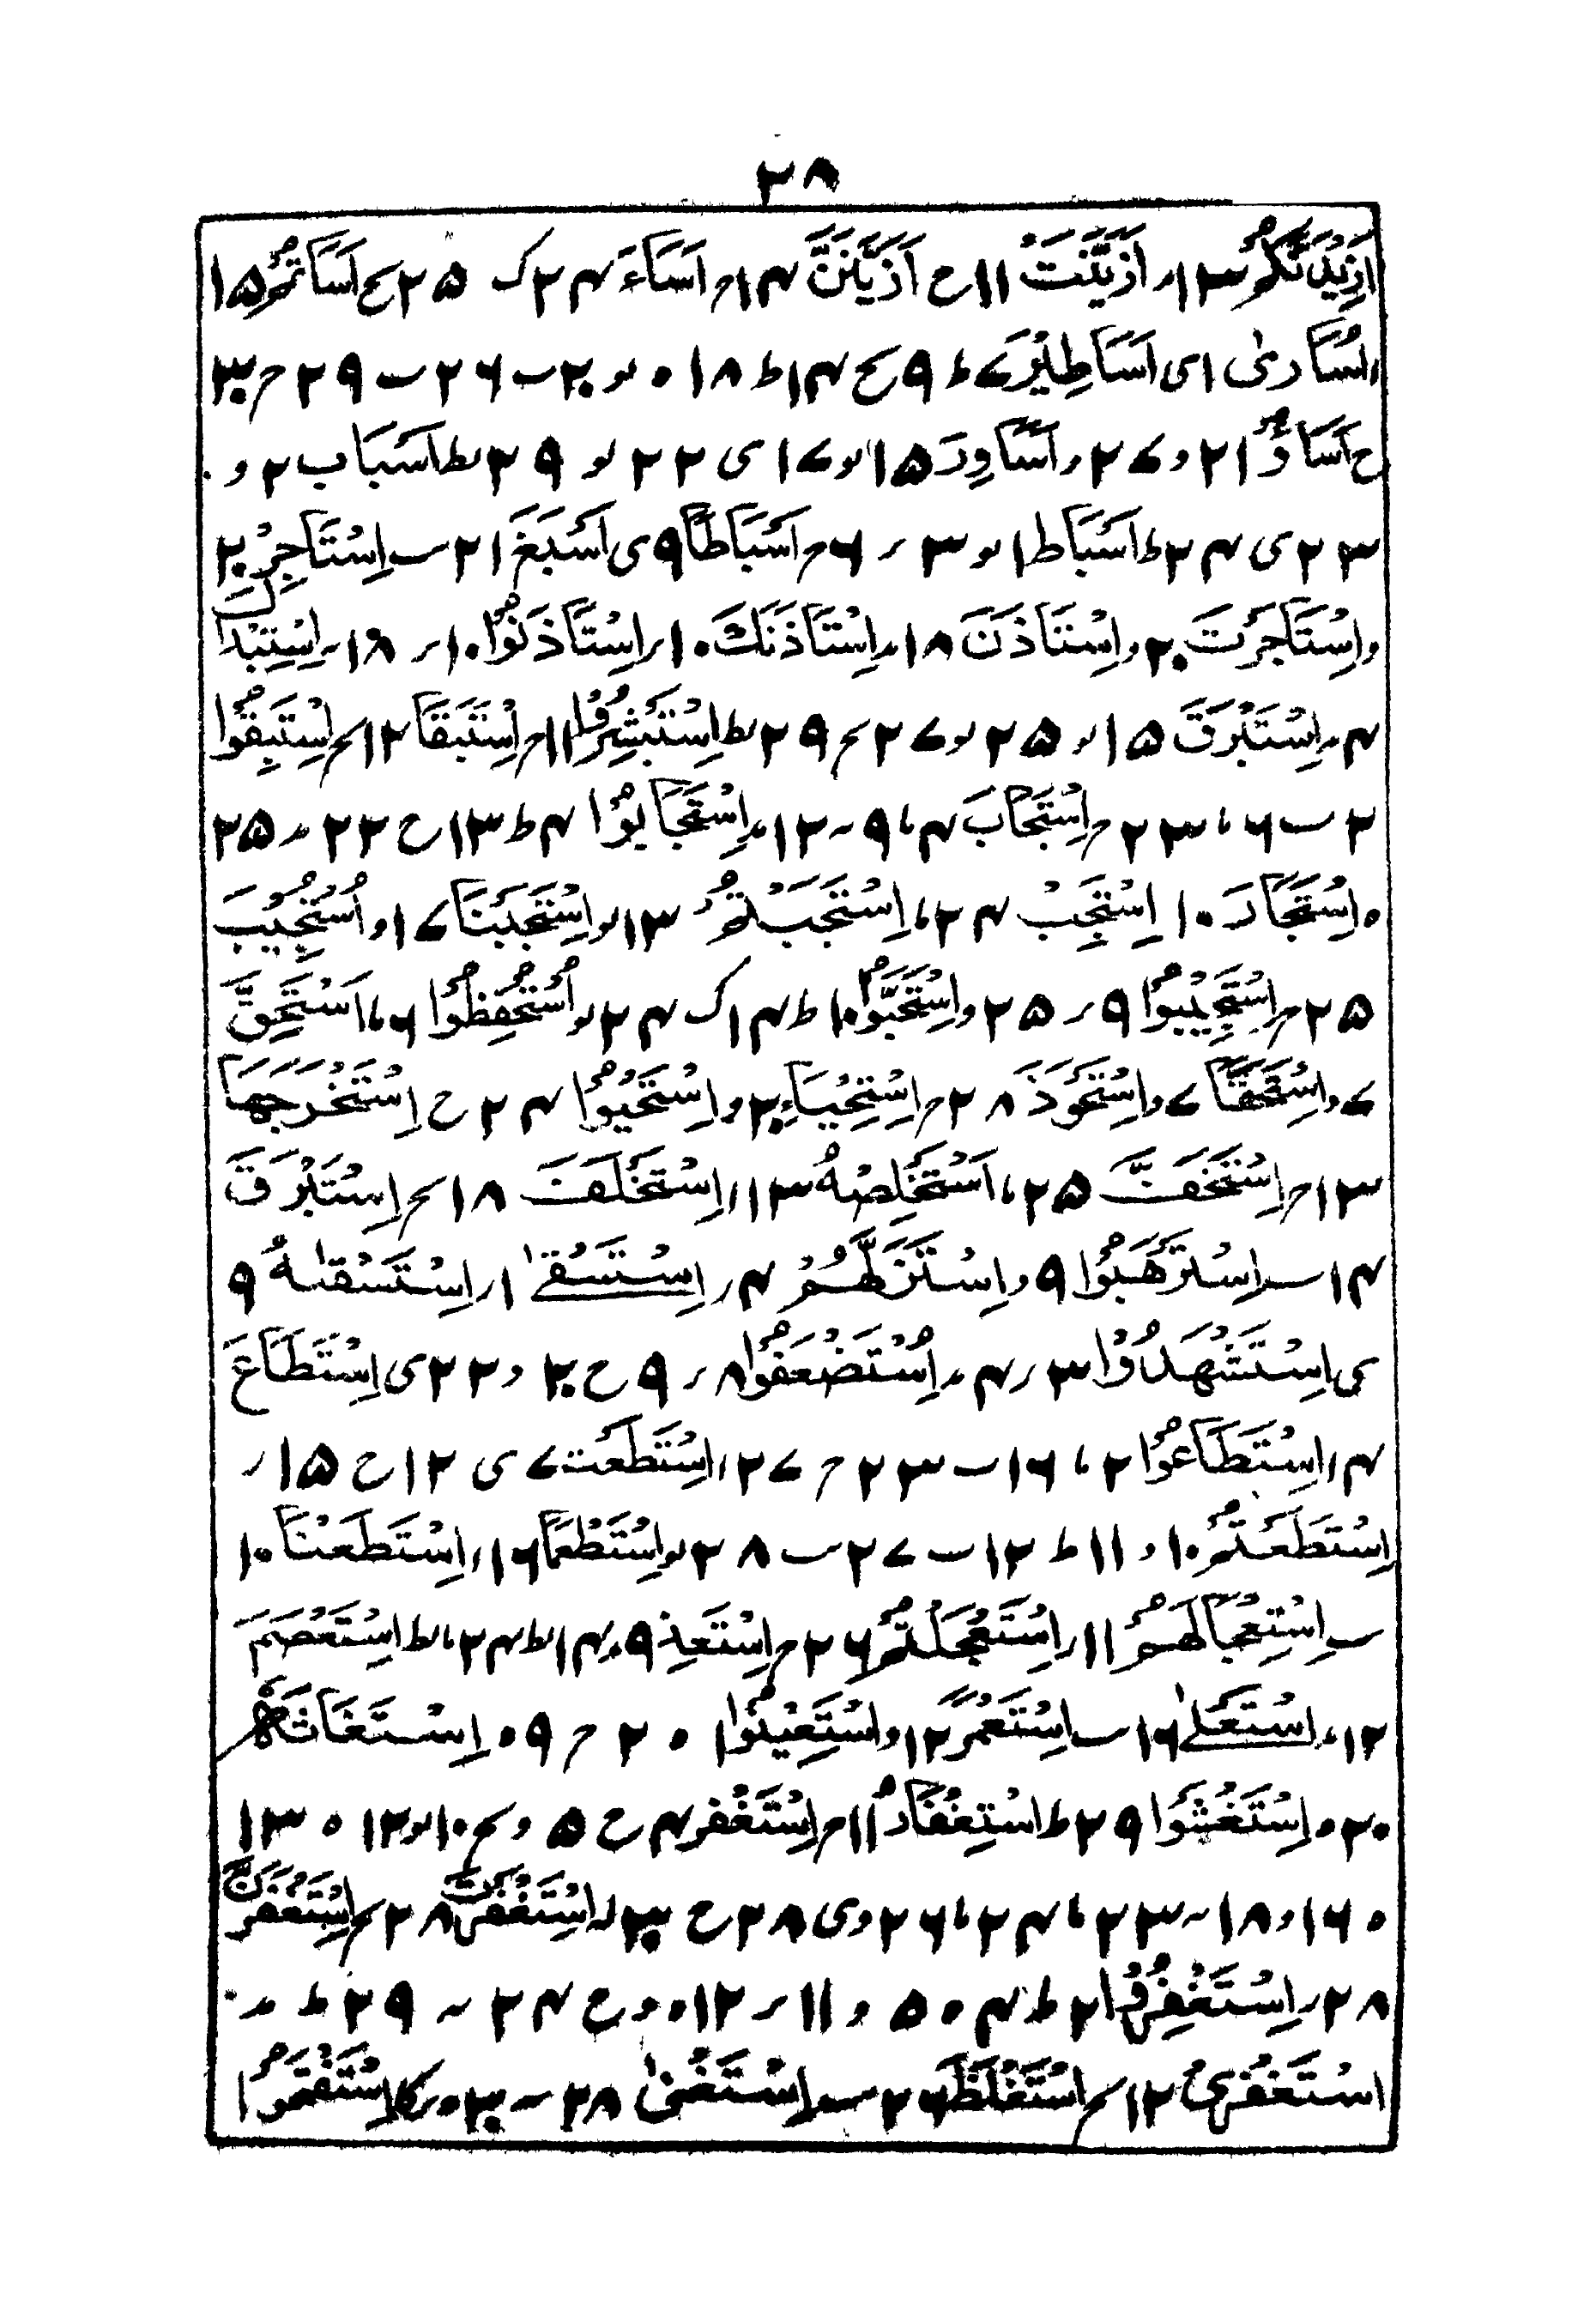 ۲۸
اَزِیْدَنَّکُمْ ۱۳ اَزَّیَّنَتْ ۱۱ ح اَزَیِّنَنَّ ۱۴ م اَسَآءَ ۲۴ ک ۲۵ ح اَسَاْتُمْ ۱۵
اُسَارٰی ۱ ی اَسَاطِیْرُ ۷ ط ۹ ح ۱۴ ط ۱۸ ه یو ۲۰ ب ۲۶ ب ۲۹ م ۳۰
ح اَسَآؤُا ۲۱ و ۲۷ اَسَاوِرَ ۱۵ یو ۱۷ ی ۲۲ یو ۲۹ یط اَسْبَاب ۲ و
۲۳ ی ۲۴ ط اَسْبَاط ۱ یو ۳ ر ۶ م اَسْبَاطًا ۹ ی اَسْبَغَ ۲۱ ب اِسْتَاجِرْ ۲۰
و اِسْتَاجَرْتَ ۲۰ و اِسْتَاذَنَ ۱۸ اِسْتَاذَنَكَ ۱۰ ر اِسْتَاذَنُوْا ۱۰ ر ۱۸ اِسْتِبْدَال
۴ اِسْتَبْرَقَ ۱۵ یو ۲۵ یو ۲۷ ۲۹ یط اِسْتَبْشِرُوْا ۱۱ م اِسْتَبَقَا ۱۲ اِسْتَبِقُوْا
۲ ب ۶ ۲۳ م اِسْتَجَابَ ۴ ۹ ۱۲ اِسْتَجَابُوْا ۴ ط ۱۳ ح ۲۲ ۲۵
ه اِسْتَجَارَ ۱۰ اِسْتَجِبْ ۲۴ اِسْتَجَبْتُمْ ۱۳ یو اِسْتَجَبْنَا ۱۷ و اُسْتُجِیْبَ
۲۵ م اِسْتَجِیْبُوْا ۹ ر ۲۵ و اِسْتَحَبُّوا ۱۰ ط ۱۴ ک ۲۴ یو اُسْتُحْفِظُوْا ۶ اِسْتَحَقَّ
۷ اِسْتَحَقَّا ۷ و اِسْتَحْوَذَ ۲۸ م اِسْتِحْیَاءٍ ۲۰ و اِسْتَحْیُوْا ۲۴ ح اِسْتَخْرَجَهَا
۱۳ م اِسْتَخَفَّ ۲۵ اَسْتَخْلِصْهُ ۱۳ اِسْتَخْلَفَ ۱۸ اِسْتَبْرَقَ
۱۴ ب اِسْتَرْهَبُوْا ۹ و اِسْتَزَلَّهُمْ ۴ ر اِسْتَسْقٰے ۱ ر اِسْتَسْقٰىهُ ۹
ی اِسْتَشْهِدُوْا ۳ ر ۴ اُسْتُضْعِفُوْا ۸ ر ۹ ح ۲۰ و ۲۲ ی اِسْتَطَاعَ
۴ اِسْتَطَاعُوْا ۲ ۱۶ ب ۲۳ م ۲۷ اِسْتَطَعْتَ ۷ ی ۱۲ ح ۱۵ ر
اِسْتَطَعْتُمْ ۱۰ و ۱۱ ط ۱۲ ب ۲۷ ب ۲۸ یو اِسْتَطْعَمَا ۱۶ اِسْتَطَعْنَا ۱۰
ب اِسْتِعْجَالَهُمْ ۱۱ ر اِسْتَعْجَلْتُمْ ۲۶ م اِسْتَعِذْ ۹ ۱۴ یط ۲۴ یط اِسْتَعْصَمَ
۱۲ اِسْتَعْلٰے ۱۶ ب اِسْتَعْمَرَ ۱۲ و اِسْتَعِیْنُوْا ۱ ه ۲ م ۹ ه اِسْتَغَاثَهُ
۲۰ ه اِسْتَغْشَوْا ۲۹ ط اِسْتِغْفَارُ ۱۱ م اِسْتَغْفَرَ ۴ ح ۵ و ۱۰ یو ۱۳ ه ۱۳
ه ۱۶ و ۱۸ ۲۳ ۲۴ ۲۶ وی ۲۸ ح ۳۰ له اِسْتَغْفَرْتَ ۲۸ اِسْتَغْفِرَنَّ
۲۸ اِسْتَغْفِرُوْا ۲ ط ۴ ه ۵ و ۱۱ ر ۱۲ ه و ح ۲۴ ۲۹ ط
اِسْتَغْفِرِیْ ۱۲ اِسْتَغْلَظَ ۲۶ ب اِسْتَغْنٰی ۲۸ ۳۰ ه اِسْتَفْتَحُوْا